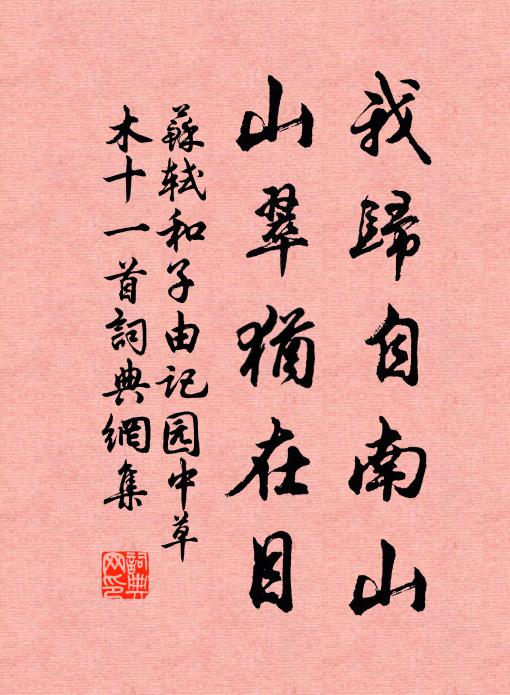 我歸自南山
山翠猶在目
蘇軾和子由记园中草
木十一首詞典網集
詞典
网印